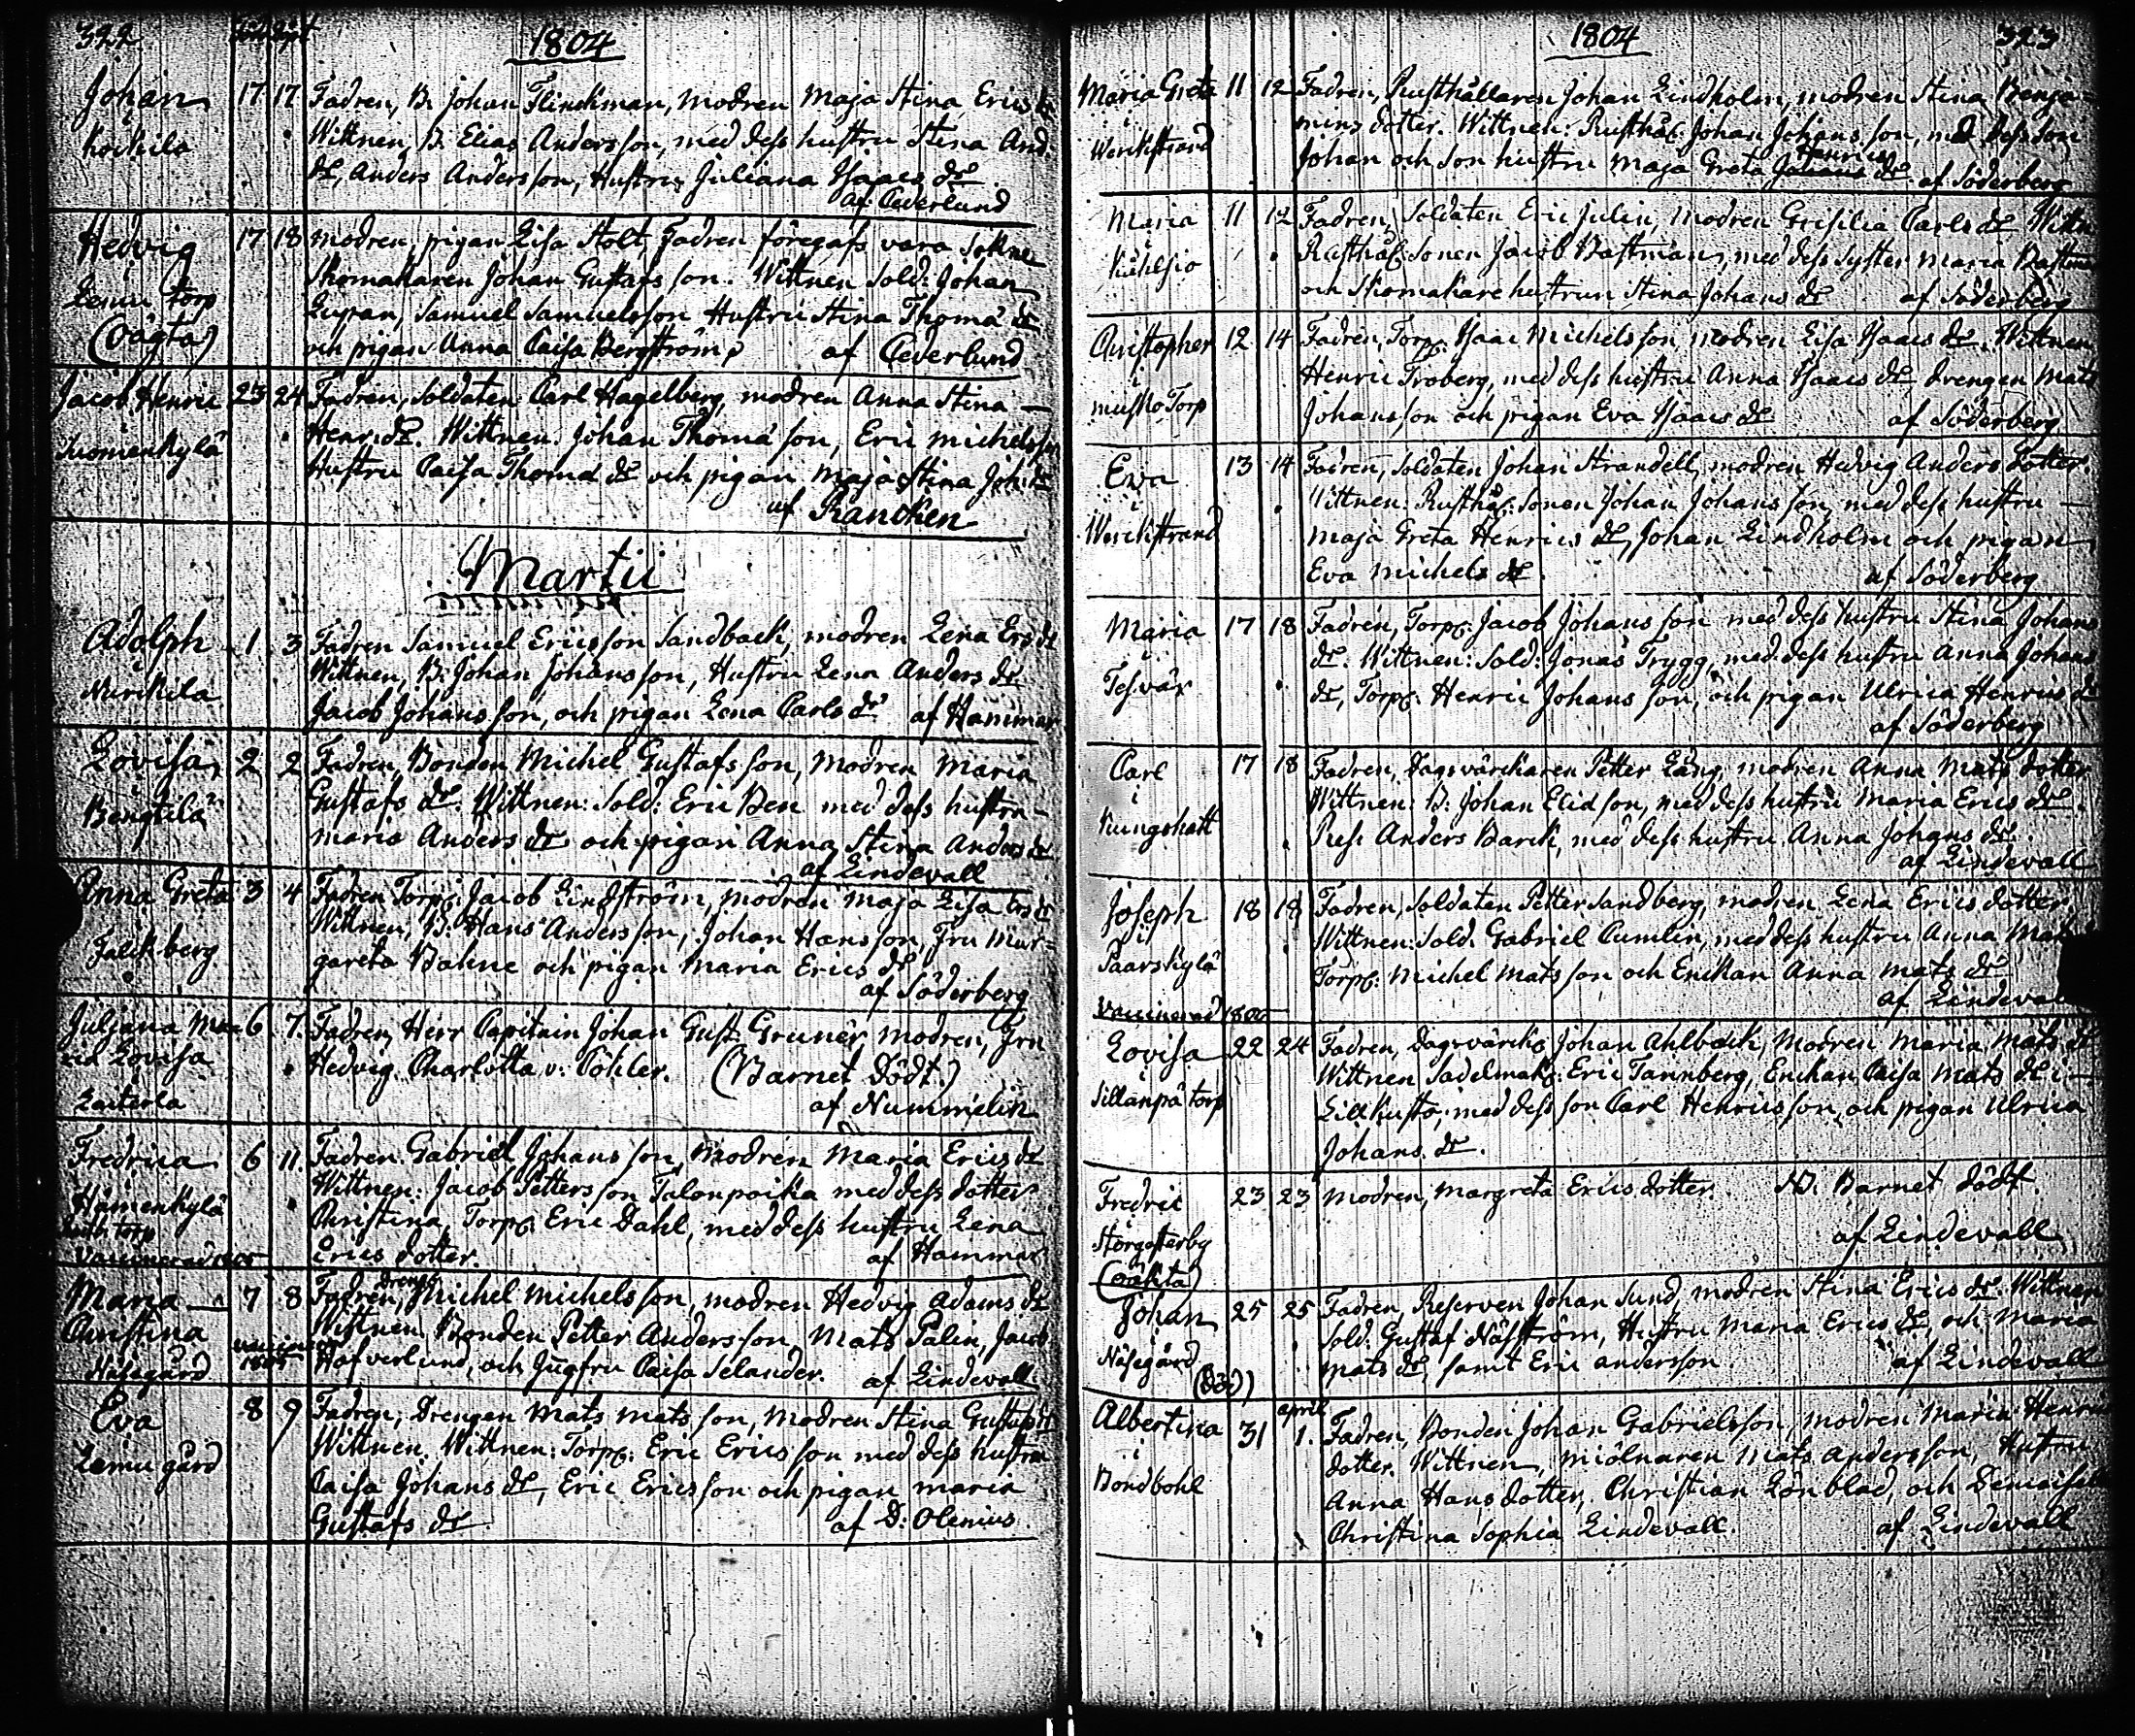 322
1804
Johan 17 17 Fadren, B. Johan Flinckman, modren Maja Stina Erics dr
Kockila Wittnen, B. Elias Andersson, med dess hustru Stina And.
dr, Anders Andersson, Hustru Juliana Isaacs dr
af Cederlund
Hedvig 17 18 modren, pigan Lisa Stolt, Fadren föregafs vara Sockne
Lemu torp Skomakaren Johan Gustafsson. Wittnen Sold: Johan
(oägta) Samuel Samuelsson Hustru Stina Thomæ dr
och pigan Anna Caisa Bergström af Cederlund
Jacob Henric 23 24 Fadren, Soldaten Carl Hagelberg, modren Anna Stina
i Henr. dr. Wittnen: Johan Thomæ son, Eric Michelsson
Suomenkylä Hustru Caisa Thomæ dr och pigan Maja Stina Joh. dr
af Rancken
Martii
Adolph 1 3 Fadren Samuel Ericsson Sandback, modren Lena Ers dr
i Wittnen, B. Johan Johansson, Hustru Lena Anders dr
Nurckila Jacob Johansson, och pigan Lena Carls dr af Hammar
Lovisa 2 2 Fadren, Bonden Michel Gustafsson, Modren Maria
i Gustafs dr. Wittnen: Sold: Eric Ben med dess hustru
Bengtilä maria Anders dr och pigan Anna Stina Anders dr
af Lindevall
Anna Greta 3 4 Fadren Torp: Jacob Lindström, modren Maja Lisa Ers dr
i Wittnen, B. Hans Andersson, Johan Hansson, Fru Mar=
Falckberg gareta Bahne och pigan Maria Erics dr
af Söderberg
Juljana Ma= 6 7. Fadren, Herr Capitain Johan Gust. Gruner, modren, Fru
ria Lovisa Hedvig Charlotta v: Cöhler. (Barnet Dödt.)
af Nummelin
Fredrica 6 11. Fadren Gabriel Johansson, Modren Maria Erics dr
i Wittnen: Jacob Pettersson Talonpoika med dess dotter
Hämenkylä Christina, Torp: Eric Dahl, med dess hustru Lena
torp Erics dotter. af Hammar
Vaccinerad 1805
Maria 7 8 Fadren, Dreng: Michel Michelsson, modren Hedvig Adams dr
Christina Wittnen Bonden Petter Andersson, Mats Palin, Jacob
Näsegård vaccinerad 1805 Hafverlund, och Jugfru Caisa Selander. af Lindevall
Eva 8 9 Fadren, Drengen Mats Matsson, Modren Stina Gustafs dr
i Wittnen. Wittnen: Torp: Eric Ericsson med dess hustru
Lemu gård Caisa Johans dr, Eric Ericsson och pigan maria
Gustafs dr. af D: Olenius
1804 323
Maria Greta 11 12 Fadren, Rusthållaren Johan Lindholm, modren Stina Benja=
i mins dotter. Wittnen: Rusthål: Johan Johansson, med dess son
Werckstrand Johan och Son hustru Maja Greta Johans Henrics dr. af Söderberg
Maria 11 12 Fadren, Soldaten Eric Julin, Modren Grisilia Carls dr Wittn
i Rusthål: Sonen Jacob Bastman, med dess syster Maria Bastman
och Skomakare hustrun Stina Johans dr af Söderberg
Christopher 12 14 Fadren, Torp: Isaac Michelsson, modren Lisa Isaacs dr. Wittnen
i Henric Troberg, med dess hustru Anna Isaacs dr, drengen Mats
Musko Torp Johansson och pigan Eva Isaacs dr af Söderberg
Eva 13 14 Fadren, Soldaten Johan Strandell, modren Hedvig Anders dotter.
i Wittnen: Rusthål: Sonen Johan Johansson, med dess hustru
Werckstrand Maja Greta Henrics dr, Johan Lindholm och pigan
Eva Michels dr. af Söderberg
Maria 17 18 Fadren, Torp: Jacob Johansson med dess hustru Stina Johans
i dr. Wittnen: Sold: Jonas Trygg, med dess hustru Anna Johans
Tesvär dr, Torp: Henric Johansson, och pigan Ulrica Henrics dr
af Söderberg
Carl 17 18 Fadren, Dagsvärckaren Petter Lång, modren Anna Mats dotter
i Wittnen: B: Johan Elidson, med dess hustru Maria Erics dr.
Kungshatt Anders Barck, med dess hustru Anna Johans dr.
af Lindevall
Joseph 18 18 Fadren, Soldaten Petter Sandberg, modren Lena Erics dotter
i Wittnen: Sold. Gabriel Cumlin, med dess hustru Anna Mats
Paarskylä Torp: Michel Matsson och Enckan Anna Mats dr
Vaccinerad 1806 af Lindeval
Lovisa 22 24 Fadren, Dagsvärck: Johan Ahlback, Modren Maria Mats dr
i Wittnen Sadelmak: Eric Tannberg, Enckan Caisa Mats dr i
Sillanpä torp med dess son Carl Henricsson, och pigan Ulrica
Johans dr.
Fredric 23 23 Modren, Margreta Erics dotter. Barnet dödt.
Storgesterby af Lindevall
(oäckta)
Johan 25 25 Fadren, Reserven Johan Sund, modren Stina Erics dr. Wittnen
i Sold. Gustaf Näsström, Hustru Maria Erics dr, och Maria
Näsegård Mats dr, samt Eric Andersson. af Lindevall
(Död)
Albertina 31 april 1. Fadren, Bonden Johan Gabrielsson, modren Maria Henrics
i dotter. Wittnen, miölnaren Mats Andersson, Hustru
Bondbohl Anna Hans dotter, Christian Lönblad, och Demoiselle
Christina Sophia Lindevall. af Lindevall